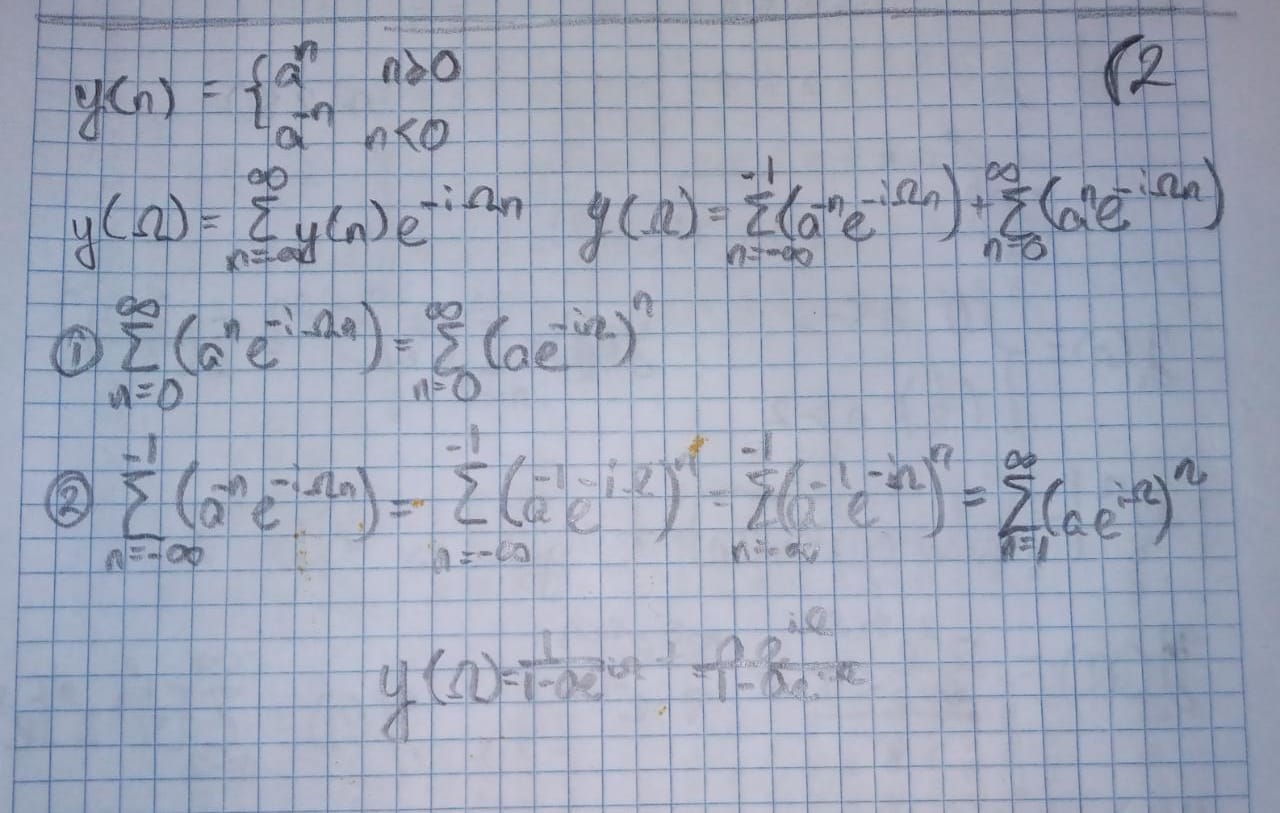 (2
y(n) = { aⁿ n≥0
a⁻ⁿ n<0
y(Ω) = ∑_{n=-∞}^{∞} y(n)e^{-iΩn} y(Ω) = ∑_{n=-∞}^{-1} (a^{-n}e^{-iΩn}) + ∑_{n=0}^{∞} (aⁿe^{-iΩn})
① ∑_{n=0}^{∞} (aⁿe^{-iΩn}) = ∑_{n=0}^{∞} (ae^{-iΩ})ⁿ
② ∑_{n=-∞}^{-1} (a^{-n}e^{-iΩn}) = ∑_{n=-∞}^{-1} (a^{-1}e^{-iΩ})ⁿ = ∑_{n=-∞}^{-1} (a^{-1}e^{-iΩ})ⁿ = ∑_{n=1}^{∞} (ae^{iΩ})ⁿ
y(Ω) =